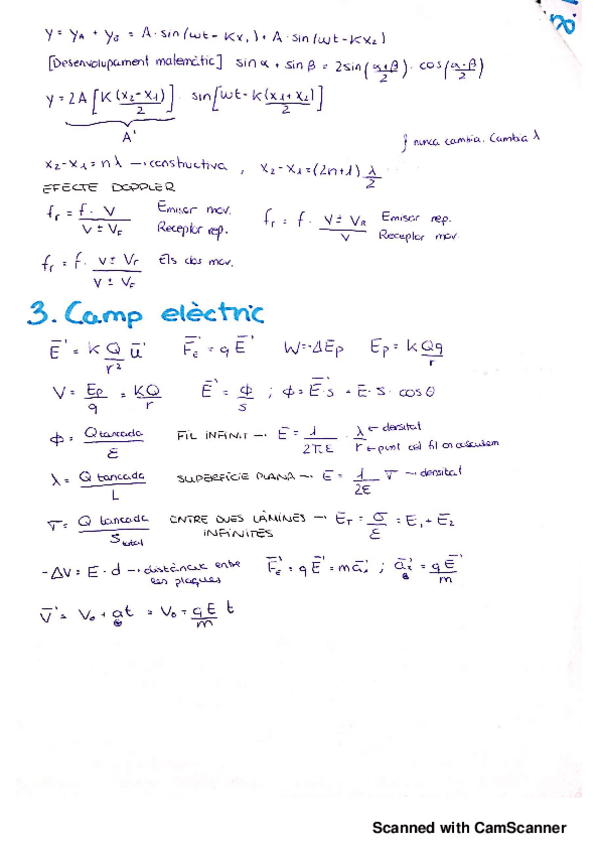 y = yA + yB = A·sin(wt - Kx1) + A·sin(wt - Kx2)
[Desenvolupament matemàtic] sin α + sin β = 2sin(α+β/2)·cos(α-β/2)
y = 2A[K(x2-x1)/2]·sin[wt - K(x1+x2)/2]
A'
} nunca cambia. Cambia λ
x2-x1 = nλ → constructiva, x2-x1 = (2n+1) λ/2
EFECTE DOPPLER
fr = f· V / V ± VF Emisor mov. Receptor rep.
fr = f· V ± VR / V Emisor rep. Receptor mov.
fr = f· V ± Vr / V ± VF Els dos mov.
3. Camp elèctric
E = K Q/r² u Fe = qE W = -ΔEp Ep = K Qq/r
V = Ep/q = KQ/r E = ϕ/s ; ϕ = E·s = E·S·cos θ
ϕ = Q tancada/ε FIL INFINIT → E = 1/2πε · λ/r ← densitat ← punt del fil on calculem
λ = Q tancada/L SUPERFÍCIE PLANA → E = 1/2ε σ → densitat
σ = Q tancada/S total ENTRE DUES LÀMINES INFINITES → ET = σ/ε = E1 + E2
-ΔV = E·d → distància entre les plaques Fe = qE = ma ; a = qE/m
V = V0 + at = V0 + qE/m t
Scanned with CamScanner